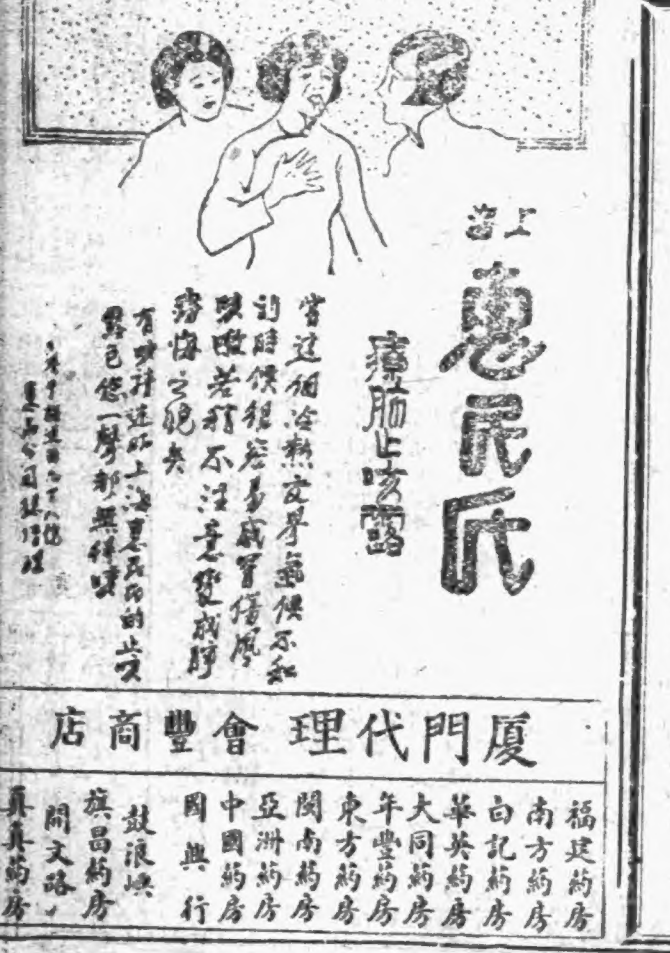 上海
惠民氏
療肺止咳露
當這個冷熱交爭氣候不和
的時候很容易感冒傷風
咳嗽若稍不注意變成肺
癆悔之晚矣
有咳「」上海惠民氏的止咳
廈門代理 會豐商店
福建葯房
南方葯房
白記葯房
華英葯房
大同葯房
年豐葯房
東方葯房
閩南葯房
亞洲葯房
中國葯房
國興行
鼓浪嶼
旗昌葯房
開文路
真真葯房